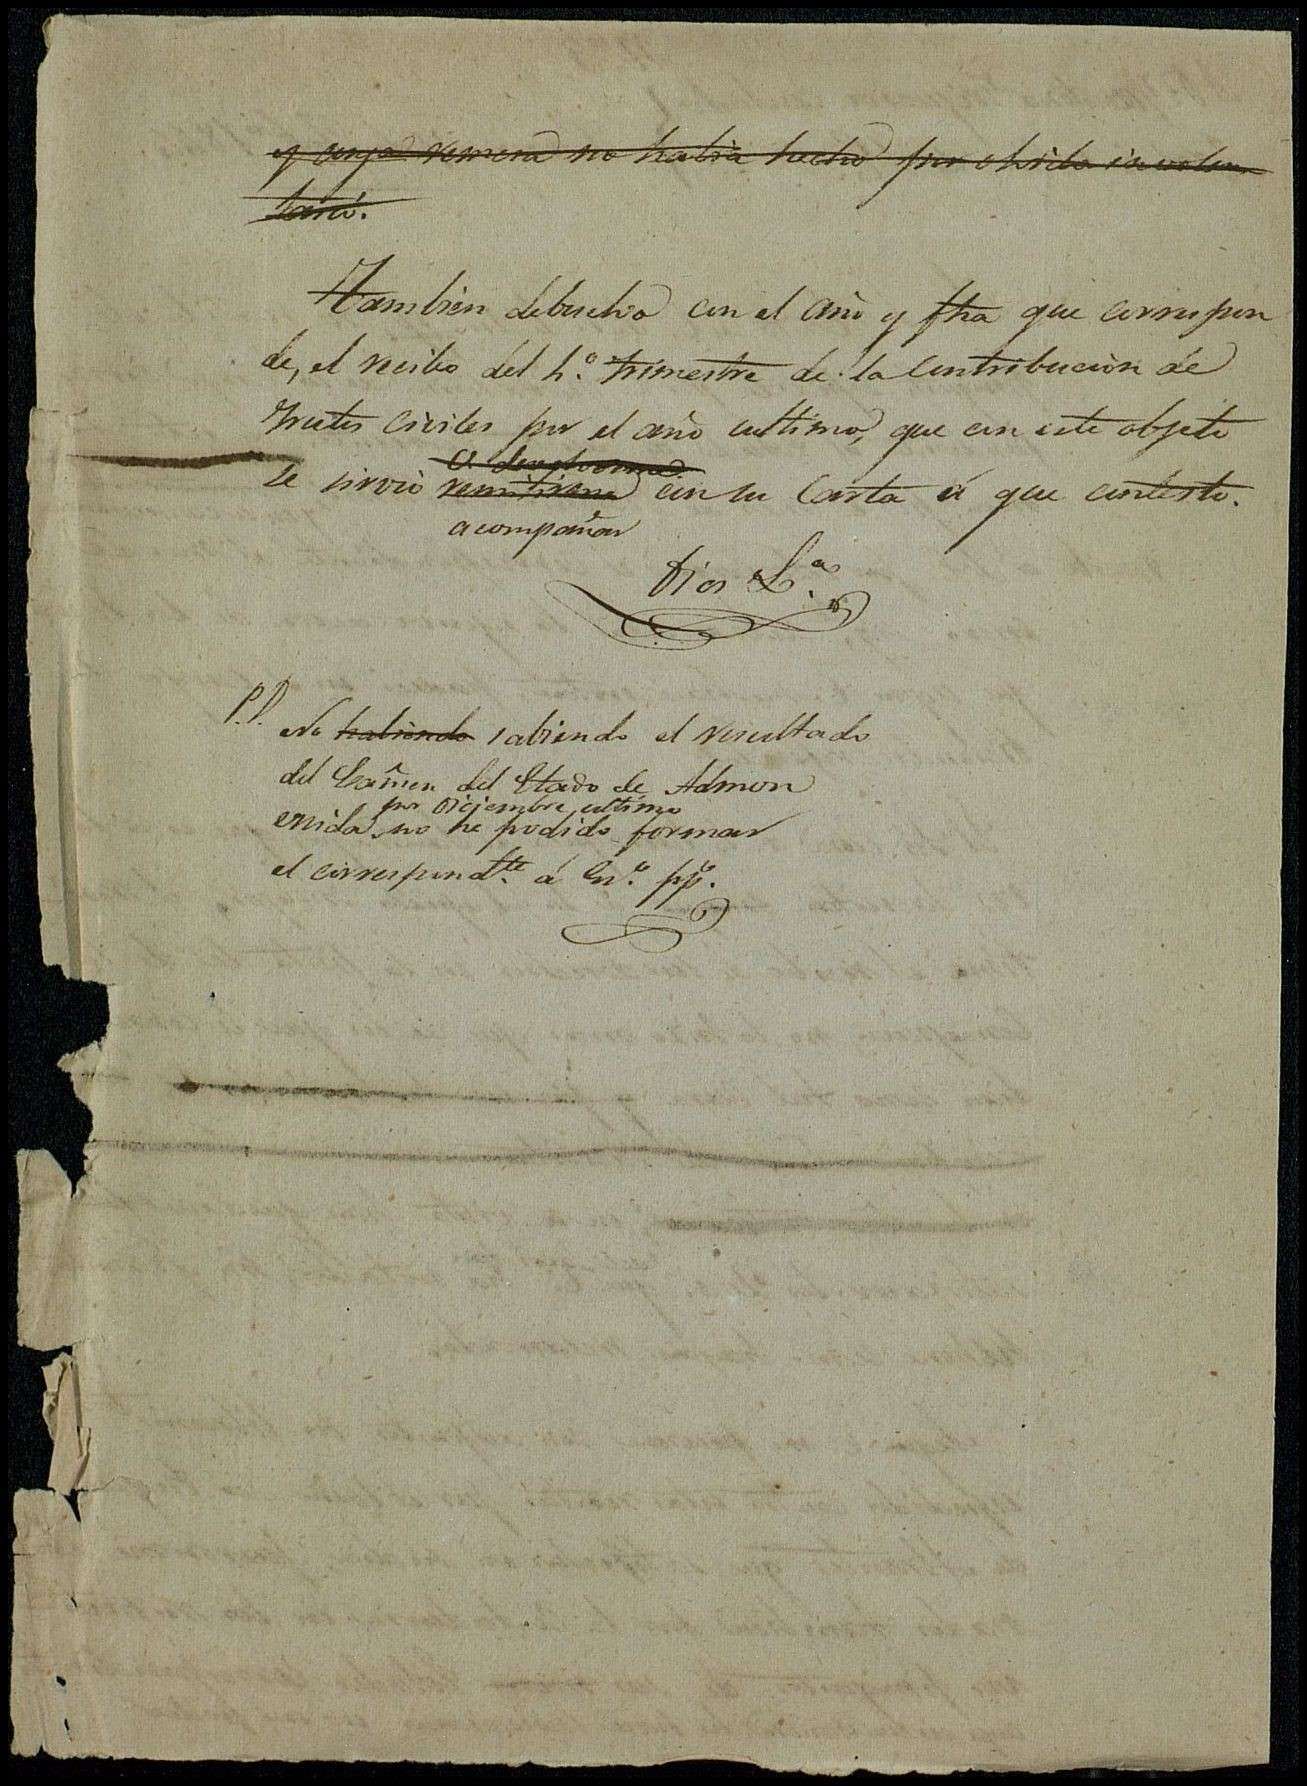 y cuya remesa no habia hecho por olvido involun
tario.
Tambien debuelvo con el año y fha que correspon
de, el recibo del 4.º trimestre de la Contribucion de
frutos civiles por el año ultimo, que con este objeto
a devolverme
se sirvió remitirme con su Carta á que contesto.
acompañar
Dios L.ª
P.D. No habiendo sabiendo el resultado
del Exâmen del Etado de Admon
por Diciembre ultimo
enida no he podido formar
el correspond.te á En.º pp.º